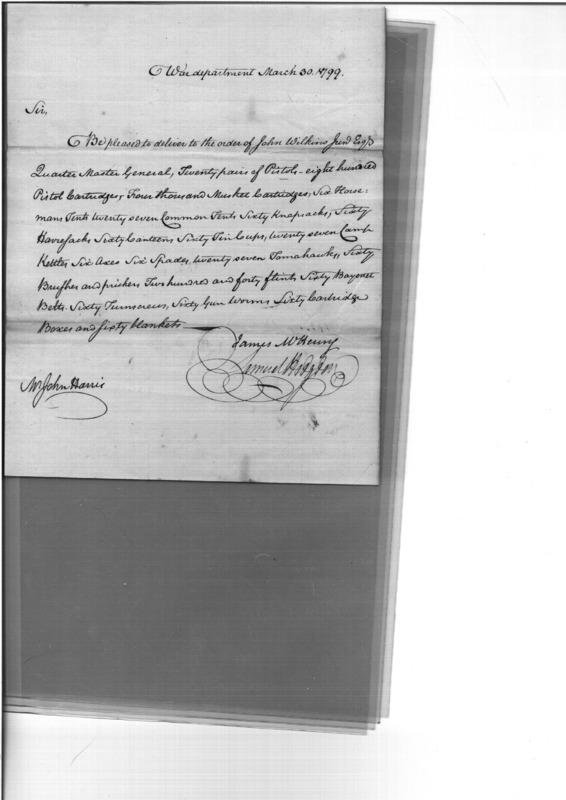 War department March 30. 1799.
Sir,
Be pleased to deliver to the order of John Wilkins Junr Esqr
Quarter Master General, Twenty pairs of Pistols - eight hundred
Pistol Cartridges, Four thousand Musket Cartridges, Six Horse-
mans Tents twenty seven Common Tents Sixty Knapsacks, Sixty
Haversacks Sixty Canteens, Sixty Tin Cups, twenty seven Camp
Kettles Six Axes Six Spades, twenty seven Tomahawks, Sixty
Brushes and prickers Two hundred and forty flints Sixty Bayonet
Belts. Sixty Turnscrews, Sixty Gun Worms Sixty Cartridge
Boxes and sixty blankets
James McHenry
Samuel Hodgdon
Mr John Harris